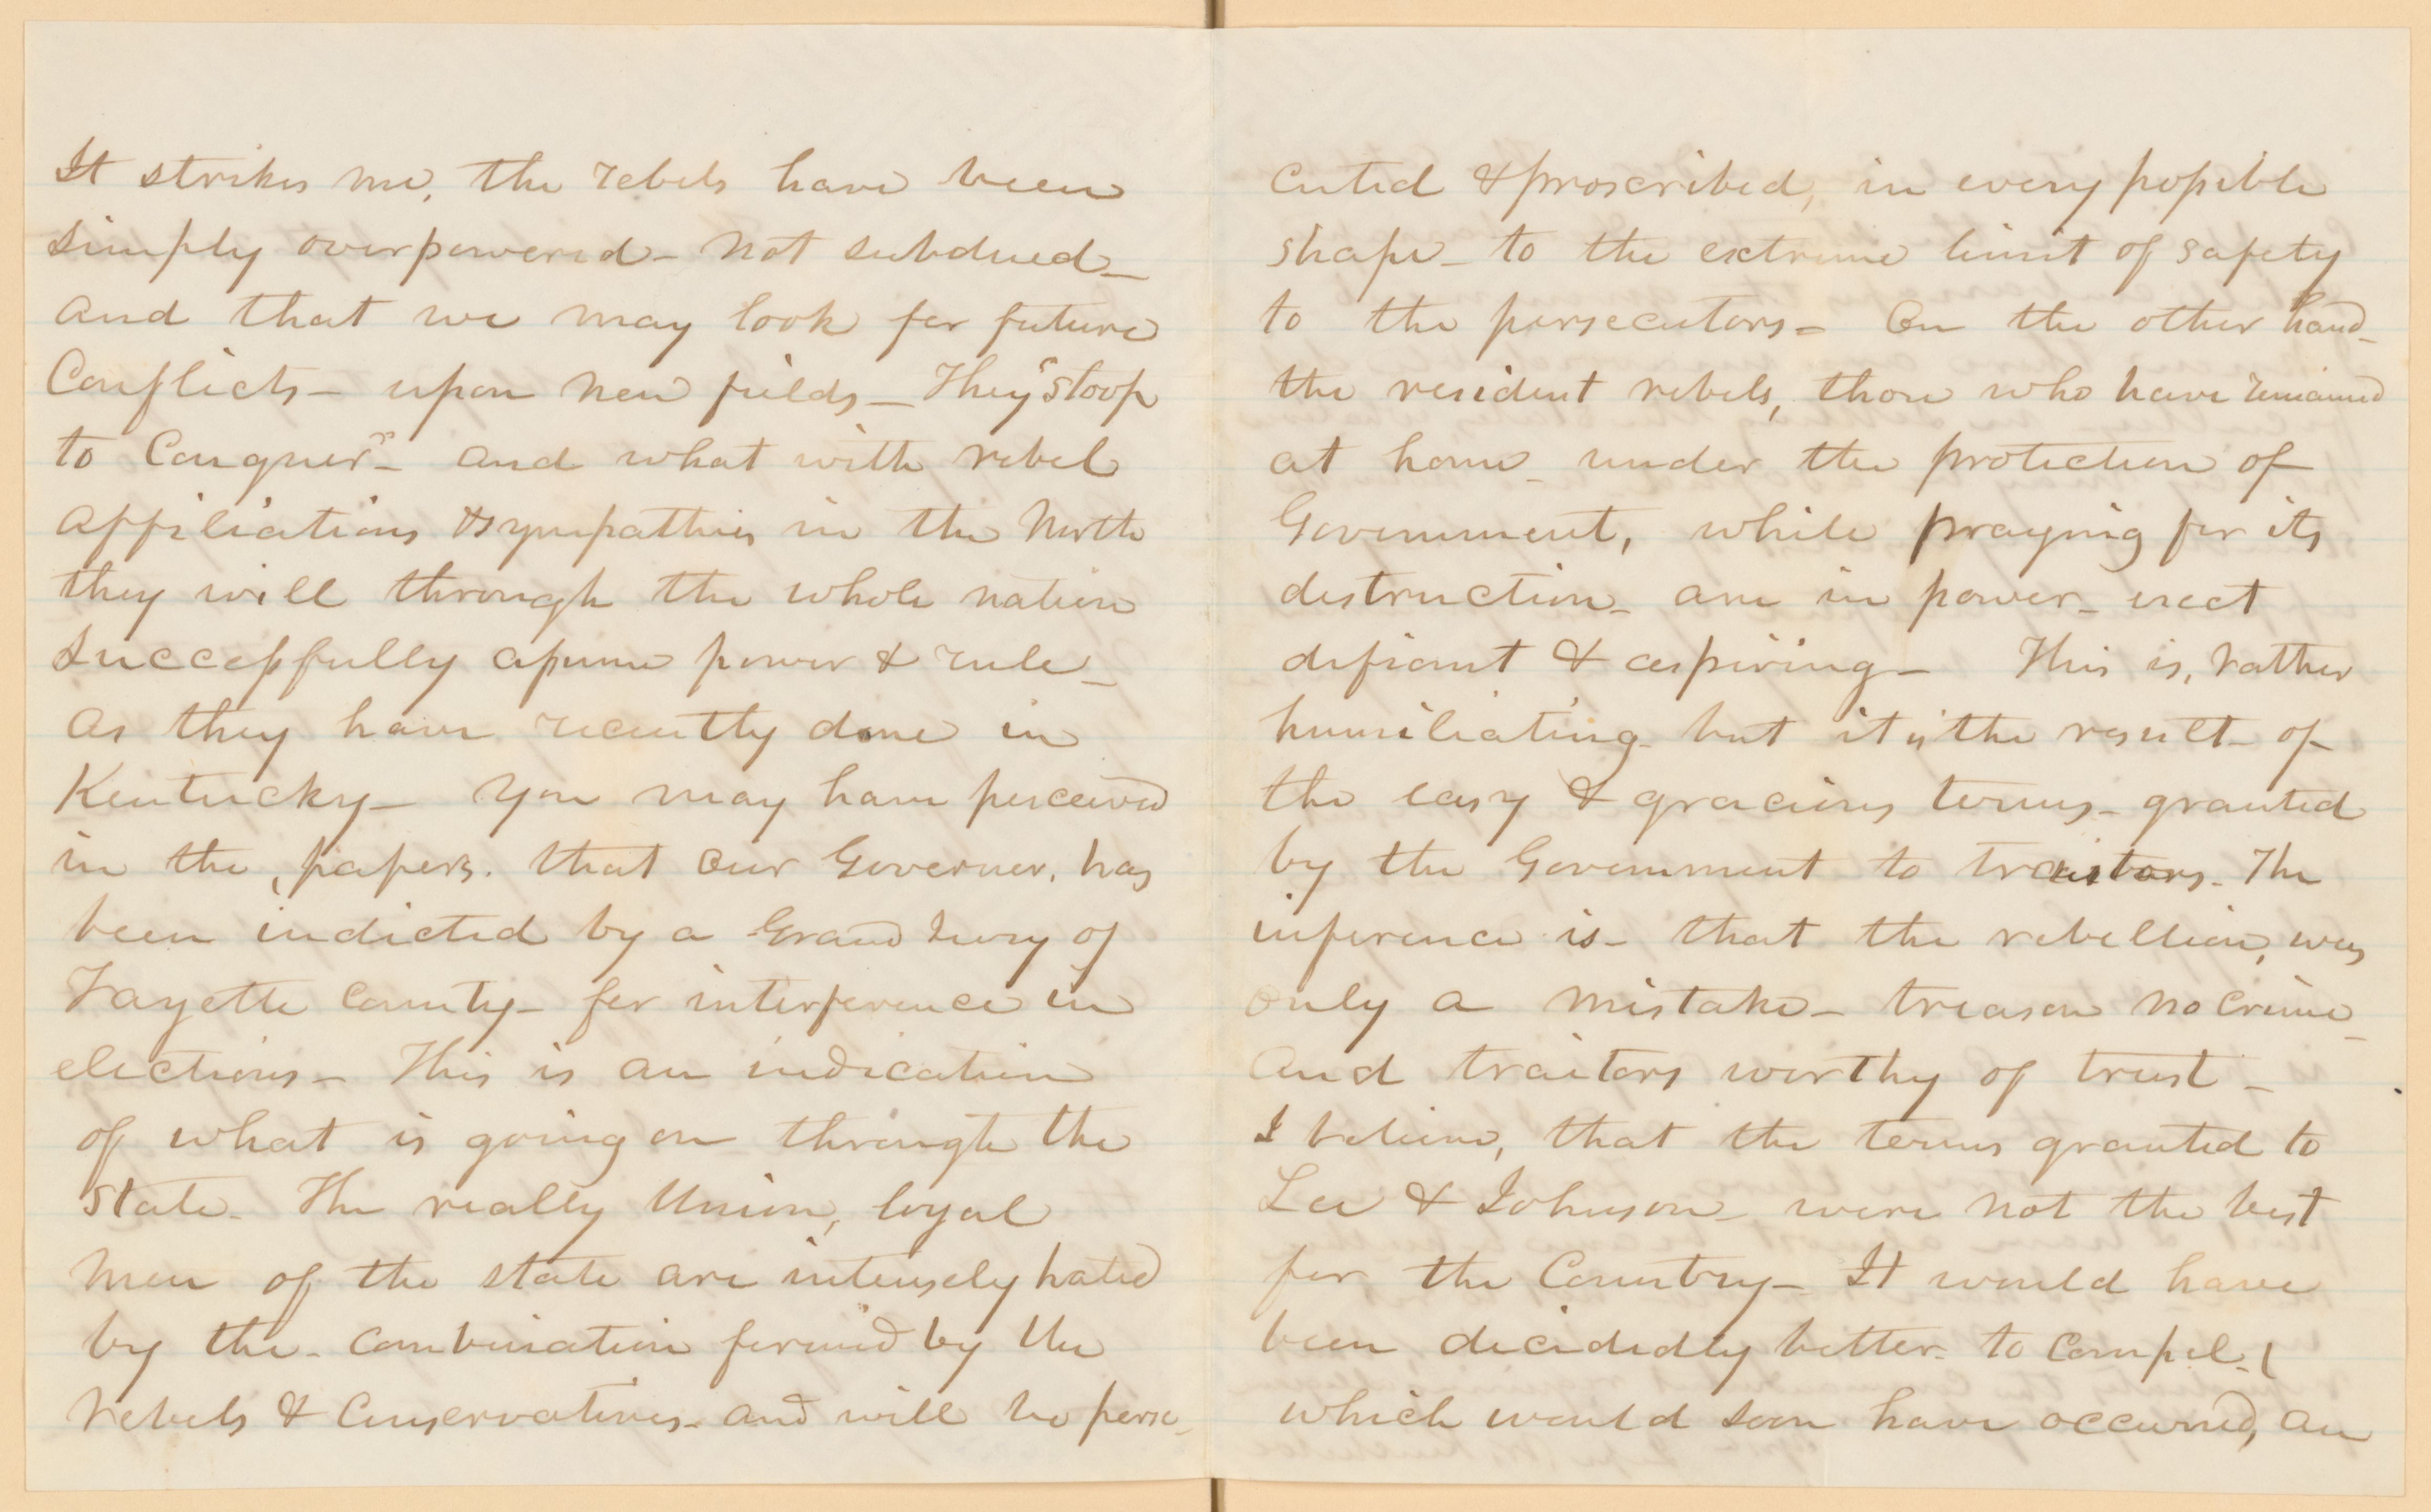 It strikes me, the rebels have been
simply overpowered - not subdued -
and that we may look for future
Conflicts - upon new fields - They "stoop
to Conquer" - and what with rebel
affiliations & sympathies in the North
they will through the whole nation
successfully assume power & rule -
as they have recently done in
Kentucky - You may have perceived
in the, papers. that our Governor, has
been indicted by a Grand Jury of
Fayette County - for interference in
elections - This is an indication
of what is going on through the
State - The really Union, loyal
men of the state are intensely hated
by the - combination formed by the
rebels & Conservatives - and will be perse-
cuted & proscribed, in every possible
shape - to the extreme limit of safety
to the persecutors - On the other hand -
the resident rebels, those who have remained
at home - under the protection of
Government, while praying for its
destruction - are in power - erect
defiant & aspiring - This is, rather
humiliating - but it is the result - of
the easy & gracious terms - granted
by the Government to traitors - The
inference is - that the rebellion, was
only a mistake - treason no crime -
and traitors worthy of trust -
I believe, that the terms granted to
Lee & Johnson - were not the best
for the Country - It would have
been decidedly better - to compel - (
which would soon have occurred, an